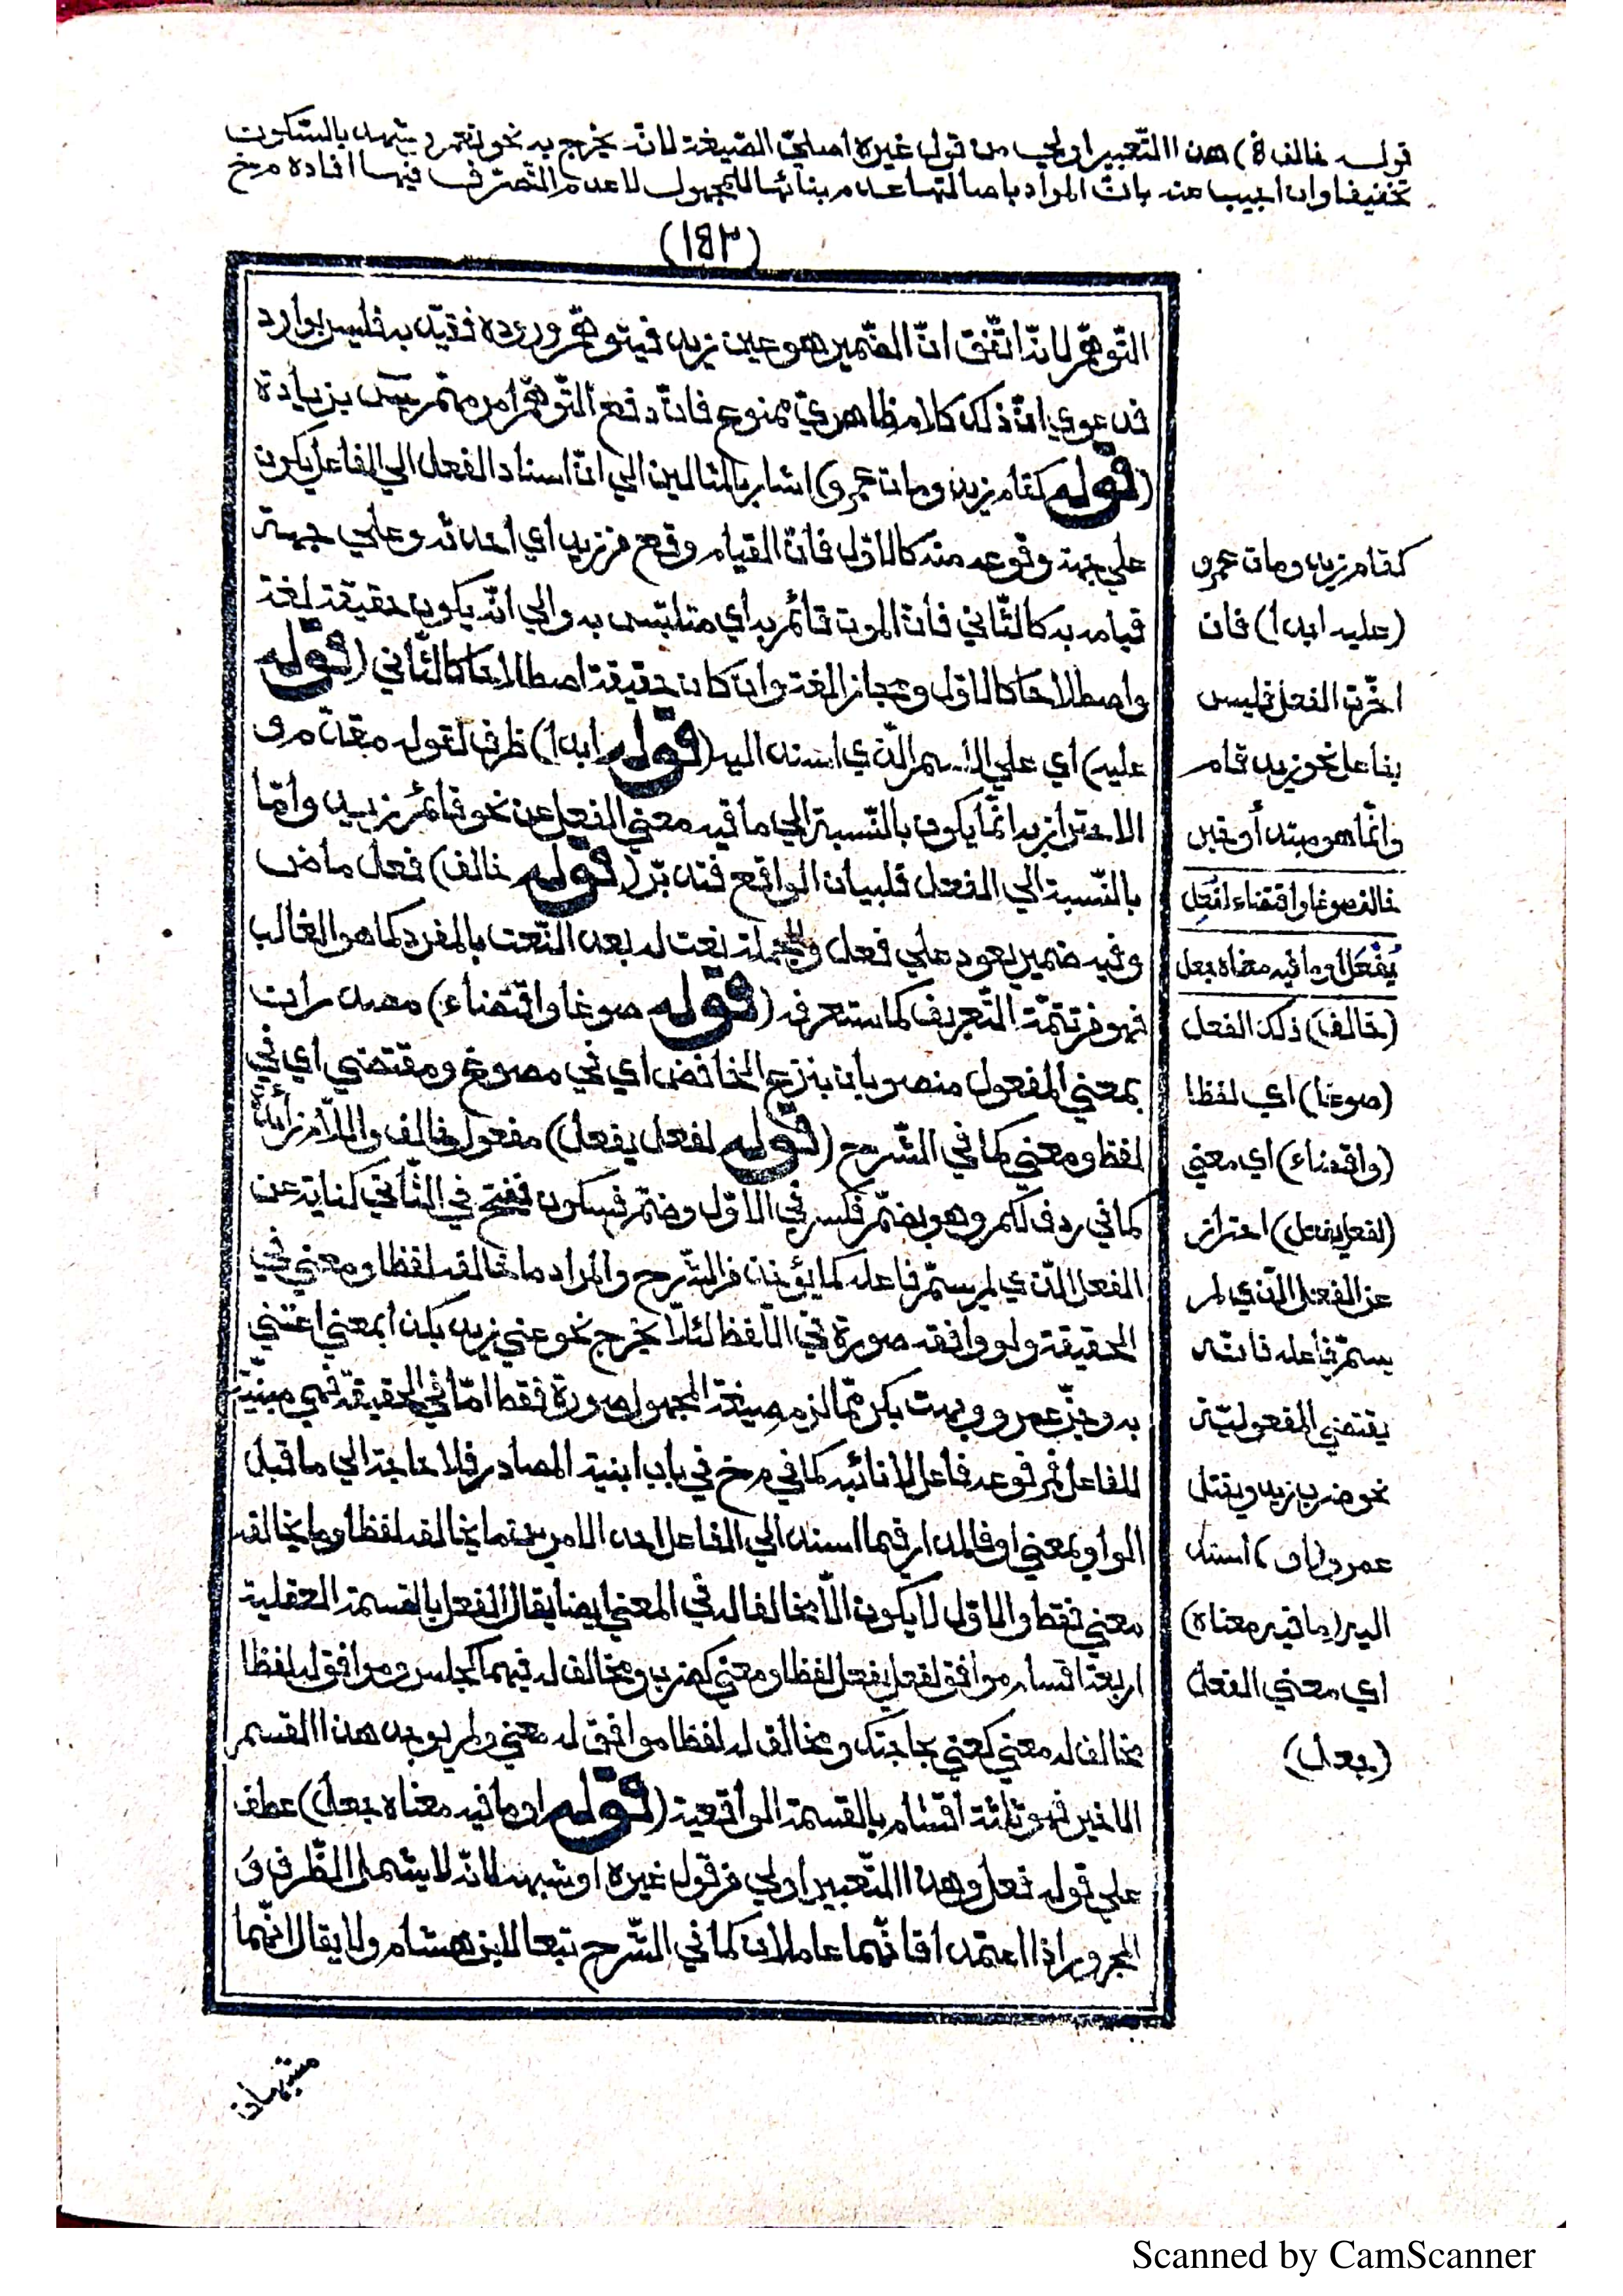 قوله خالف الخ) هذا التعبير اولي من قول غيره اصليّ الصيغة لانه يخرج به نحو نعم وشهد بالسكون
تخفيفا وان اجيب عنه بانّ المراد باصالتها عدم بنائها للمجهول لا عدم التصرّف فيها افاده م رخ
(١٤٢)
التّوهّم لانّه اتّفق انّ الضّمير هو عين زيد فيتوهّم وروده فقيّد به فليس بوارد
فدعوي انّ ذلك كلام ظاهريّ ممنوع فانّ دفع التّوهّم امر مهتمّ به بزيادة
(قوله كقام زيد ومات عمرو) اشار بالمثالين الي انّ اسناد الفعل الي الفاعل يكون
علي جهة وقوعه منه كالاوّل فانّ القيام وقع من زيد اي احدثه وعلي جهة
قيامه به كالثّاني فانّ الموت قائم به اي متلبّس به والي انّه يكون حقيقة لغة
واصطلاحا كالاوّل ومجازا لغة وان كان حقيقة اصطلاحا كالثّاني (قوله
عليه) اي علي الاسم الّذي اسند اليه (قوله ابدا) ظرف لقوله مقدّم و
الاحتراز به انّما يكون بالنّسبة الي ما فيه معني الفعل عن نحو قائم زيد وامّا
بالنّسبة الي الفعل فلبيان الواقع فتدبّر (قوله خالف) فعل ماض
وفيه ضمير يعود علي فعل والجملة نعت له بعد النّعت بالمفرد كما هو الغالب
فهو من تتمّة التّعريف كما ستعرفه (قوله صوغا واقتضاء) مصدران
بمعني المفعول منصوبان بنزع الخافض اي في مصوغ ومقتضي اي في
لفظ ومعني كما في الشّرح (قوله لفعل يفعل) مفعول خالف واللّام زائدة
كما في ردف لكم وهو بضمّ فكسر في الاوّل وضمّ فسكون ففتح في الثّاني كناية عن
الفعل الّذي لم يسمّ فاعله كما يؤخذ من الشّرح والمراد ما خالفه لفظا ومعني في
الحقيقة ولو وافقه صورة في اللّفظ لئلّا يخرج نحو عني زيد بكذا بمعني اعتني
به وجنّ عمرو وبهت بكر ممّا لزم صيغة المجهول صورة فقط امّا في الحقيقة فهي مبنيّة
للفاعل فمرفوعه فاعل لا نائبه كما في م رخ في باب ابنية المصادر فلا حاجة الي ما قيل
الواو بمعني او فالمدار فيما اسند الي الفاعل احد الامرين ما يخالفه لفظا وما يخالفه
معني فقط والاوّل لا يكون الّا مخالفا له في المعني ايضا يقال الفعل بالقسمة العقلية
اربعة اقسام موافق لفعل يفعل لفظا ومعني كضرب ومخالف له فيهما كجلس وموافق له لفظا
مخالف له معني كعني بحاجتك ومخالف له لفظا موافق له معني ولم يوجد هذا القسم
الاخير فهو ثلاثة اقسام بالقسمة الواقعية (قوله او ما فيه معناه جعل) عطف
علي قوله فعل وهذا التّعبير اولي من قول غيره او شبهه لانّه لا يشمل الظّرف و
المجرور اذا اعتمدا فانّهما عاملان كما في الشّرح تبعا لابن هشام ولا يقال انّهما
كقام زيد ومات عمرو
(عليه ابدا) فان
اخّرت الفعل فليس
بفاعل نحو زيد قام
وانّما هو مبتدأ وخبر
خالف صوغا واقتضاء لفُعِل
يُفْعَل او ما فيه معناه جعل
(خالف) ذلك الفعل
(صوغا) اي لفظا
(واقتضاء) اي معني
(لفعل يفعل) احتراز
عن الفعل الّذي لم
يسمّ فاعله فانّه
يقتضي المفعوليّة
نحو ضرب زيد ويقتل
عمرو (او) اسند
اليه (ما فيه معناه)
اي معني الفعل
(جعل)
مشبهان
Scanned by CamScanner